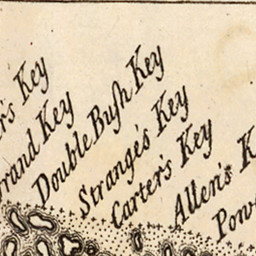 Key
Key
Double Bush Key
Strange's Key
Carter's Key
Allen's